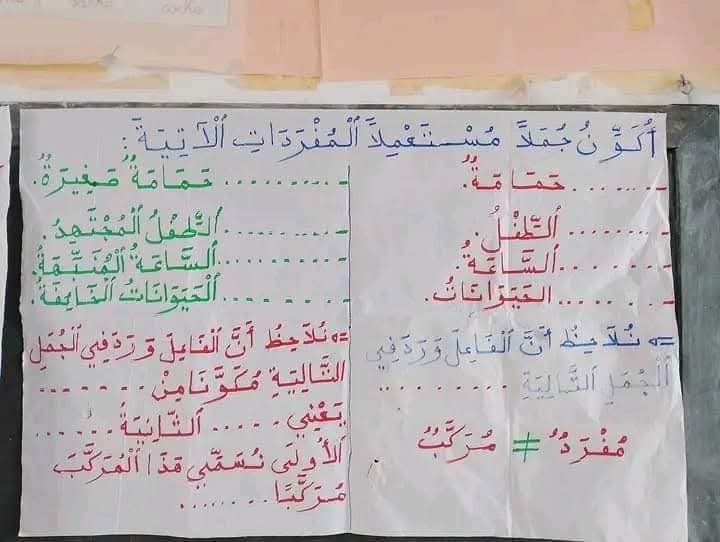 أُكَوِّنُ جُمَلاً مُسْتَعْمِلاً ٱلْمُفْرَدَاتِ ٱلْآتِيَةَ:
- ......... حَمَامَةٌ.
- ......... ٱلطِّفْلُ.
- ......... ٱلسَّاعَةُ.
- ......... الحَيَوَانَاتُ.
=> نُلَاحِظُ أَنَّ ٱلْفَاعِلَ وَرَدَ فِي
ٱلْجُمَلِ ٱلتَّالِيَةِ .........
مُفْرَدٌ ≠ مُرَكَّبٌ
- ......... حَمَامَةٌ صَغِيرَةٌ.
- ......... ٱلطِّفْلُ ٱلْمُجْتَهِدُ.
- ......... ٱلسَّاعَةُ ٱلْمُنَبِّهَةُ.
- ......... ٱلْحَيَوَانَاتُ ٱلْخَائِفَةُ.
=> نُلَاحِظُ أَنَّ ٱلْفَاعِلَ وَرَدَ فِي ٱلْجُمَلِ
ٱلتَّالِيَةِ مُكَوَّنًا مِنْ .......
يَعْنِي ..... ٱلثَّانِيَةُ ......
ٱلْأُولَى نُسَمِّي هَذَا ٱلْمُرَكَّبَ
مُرَكَّبًا .......